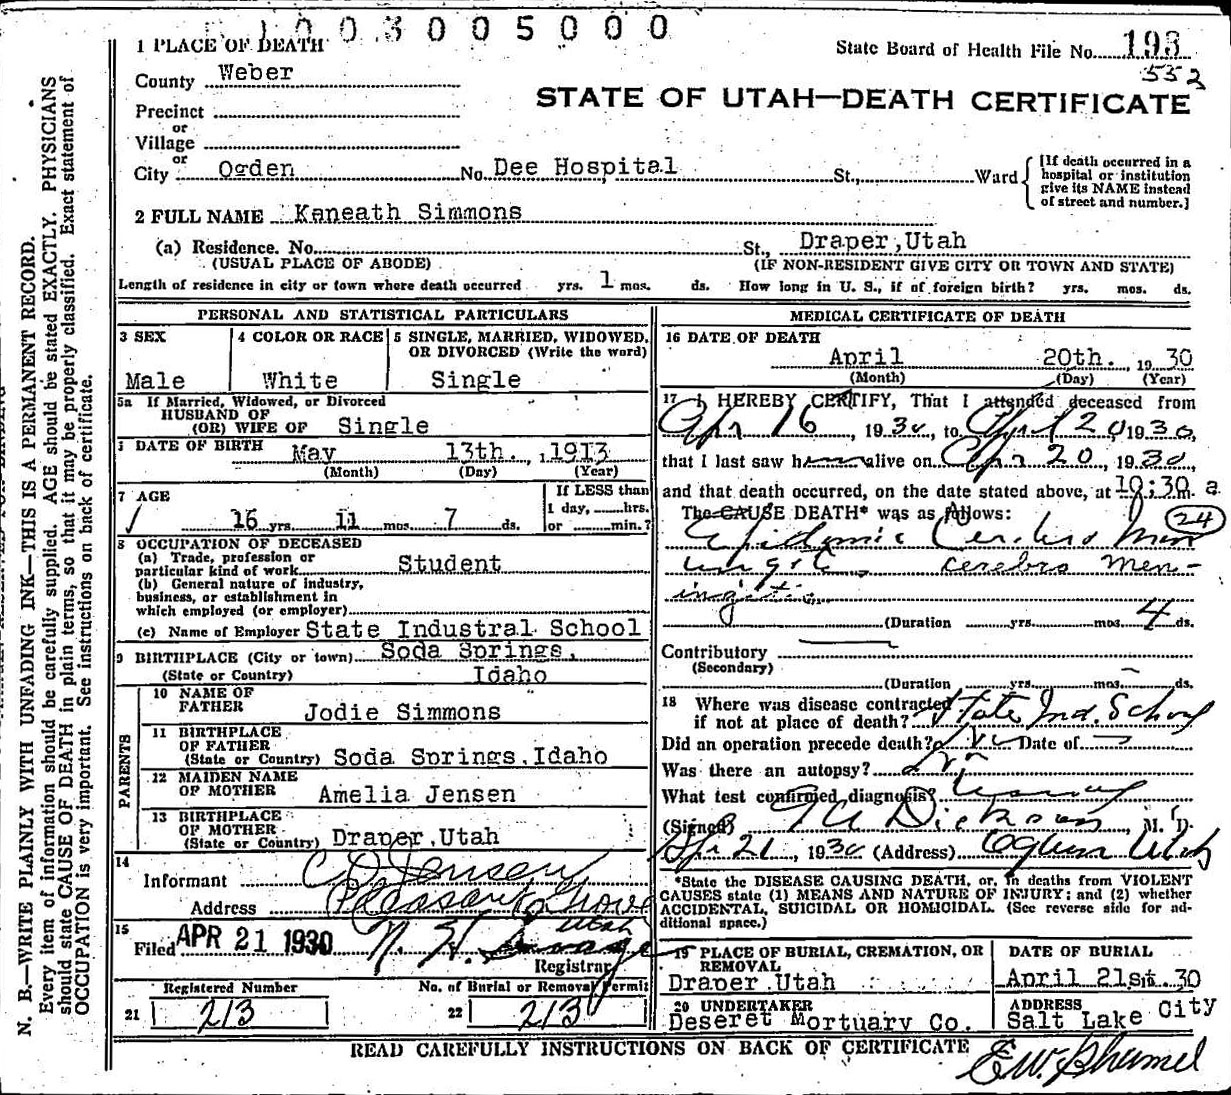 1003005000
1 PLACE OF DEATH
State Board of Health File No. 193
County Weber
552
STATE OF UTAH—DEATH CERTIFICATE
Precinct
or
Village
or
City Ogden No. Dee Hospital St., Ward
[If death occurred in a
hospital or institution
give its NAME instead
of street and number.]
2 FULL NAME Keneath Simmons
(a) Residence. No. St., Draper, Utah
(USUAL PLACE OF ABODE) (IF NON-RESIDENT GIVE CITY OR TOWN AND STATE)
Length of residence in city or town where death occurred yrs. 1 mos. ds. How long in U. S., if of foreign birth? yrs. mos. ds.
PERSONAL AND STATISTICAL PARTICULARS
3 SEX
Male
4 COLOR OR RACE
White
5 SINGLE, MARRIED, WIDOWED,
OR DIVORCED (Write the word)
Single
5a If Married, Widowed, or Divorced
HUSBAND OF
(OR) WIFE OF Single
DATE OF BIRTH May 13th. , 1913
(Month) (Day) (Year)
7 AGE
16 yrs. 11 mos. 7 ds.
If LESS than
1 day, hrs.
or min.?
8 OCCUPATION OF DECEASED
(a) Trade, profession or
particular kind of work Student
(b) General nature of industry,
business, or establishment in
which employed (or employer)
(c) Name of Employer State Industral School
9 BIRTHPLACE (City or town) Soda Springs,
(State or Country) Idaho
PARENTS
10 NAME OF
FATHER
Jodie Simmons
11 BIRTHPLACE
OF FATHER
(State or Country) Soda Springs, Idaho
12 MAIDEN NAME
OF MOTHER Amelia Jensen
13 BIRTHPLACE
OF MOTHER
(State or Country) Draper, Utah
14
Informant C Jensen
Address Pleasant Grove
Utah
15
Filed APR 21 1930
Registrar
Registered Number
21 213
No. of Burial or Removal Permit
22 213
MEDICAL CERTIFICATE OF DEATH
16 DATE OF DEATH
April 20th. , 1930
(Month) (Day) (Year)
17 I HEREBY CERTIFY, That I attended deceased from
Apr 16, 1930, to April 20 1930,
that I last saw him alive on Apr 20, 1930,
and that death occurred, on the date stated above, at 10:30 m. a
The CAUSE DEATH* was as follows:
24
Epidemic Cerebro Men
ingitis cerebro men-
ingitis
(Duration yrs. mos. 4 ds.
Contributory
(Secondary)
(Duration yrs. mos. ds.
18 Where was disease contracted
if not at place of death? State Ind. School
Did an operation precede death? No Date of
Was there an autopsy? No
What test confirmed diagnosis?
(Signed) Dickson, M. D.
Apr 21, 1930 (Address) Ogden Utah
*State the DISEASE CAUSING DEATH, or, in deaths from VIOLENT
CAUSES state (1) MEANS AND NATURE OF INJURY; and (2) whether
ACCIDENTAL, SUICIDAL OR HOMICIDAL. (See reverse side for ad-
ditional space.)
19 PLACE OF BURIAL, CREMATION, OR
REMOVAL
Draper Utah
DATE OF BURIAL
April 21st. 30
20 UNDERTAKER
Deseret Mortuary Co.
ADDRESS
Salt Lake City
READ CAREFULLY INSTRUCTIONS ON BACK OF CERTIFICATE
N. B.—WRITE PLAINLY WITH UNFADING INK—THIS IS A PERMANENT RECORD.
Every item of information should be carefully supplied. AGE should be stated EXACTLY. PHYSICIANS
should state CAUSE OF DEATH in plain terms, so that it may be properly classified. Exact statement of
OCCUPATION is very important. See instructions on back of certificate.